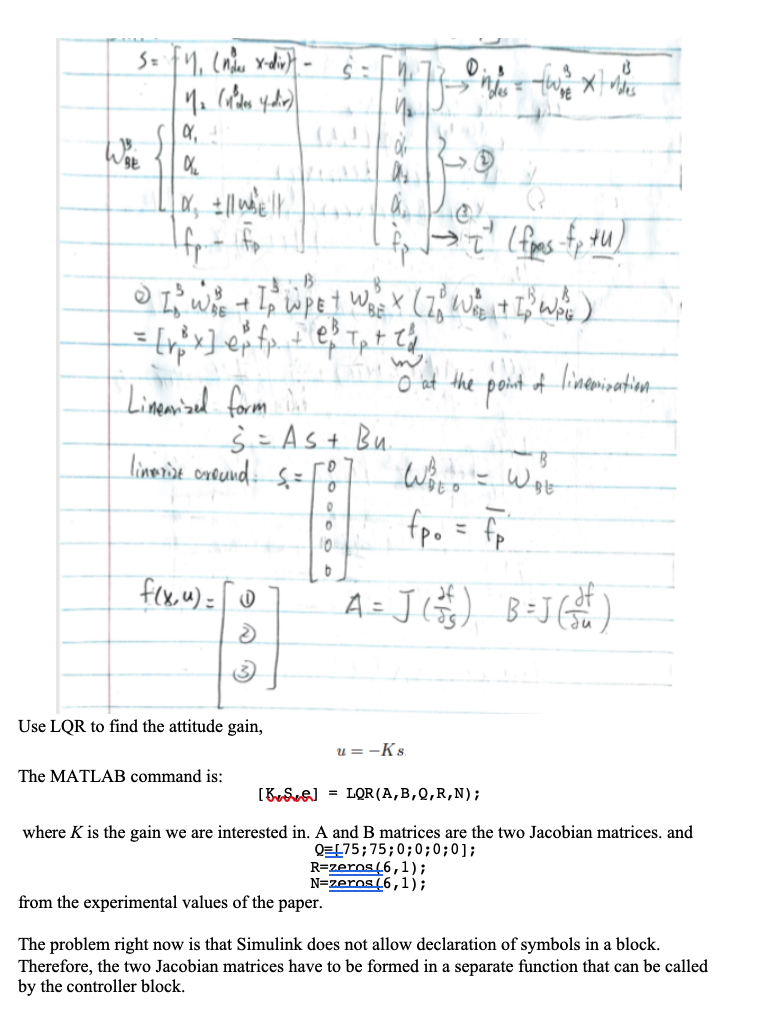 S = [ η₁ (n^B_des x-dir) - ṡ = [ η̇₁ ] } → ① ṅ^B_des = -[ω^B_BE ×] n^B_des
η₂ (n^B_des y-dir) η̇₂
ω^B_BE { α₁ α̇₁ } → ②
α₂ α̇₂
α₃ ± ||ω^B_BE|| α̇₃
f_p - f̄_p ḟ_p ] → ③ τ⁻¹ (f_pms - f_p + u)
② I^B_B ω̇^B_BE + I^B_p ω̇^B_PE + ω^B_BE × (I^B_B ω^B_BE + I^B_p ω^B_PE)
= [r^B_p ×] e^B_p f_p + e^B_p T_p + τ^B_d
0 at the point of linearization.
Linearized form
ṡ = As + Bu.
linearize around: s = [ 0 0 0 0 0 0 ] ω^B_BE₀ = ω̄^B_BE
f_p₀ = f̄_p
f(x,u) = [ ① ② ③ ] A = J(∂f/∂s) B = J(∂f/∂u)
Use LQR to find the attitude gain,
u = −K s
The MATLAB command is:
[K,S,e] = LQR(A,B,Q,R,N);
where K is the gain we are interested in. A and B matrices are the two Jacobian matrices. and
Q=[75;75;0;0;0;0];
R=zeros(6,1);
N=zeros(6,1);
from the experimental values of the paper.
The problem right now is that Simulink does not allow declaration of symbols in a block.
Therefore, the two Jacobian matrices have to be formed in a separate function that can be called
by the controller block.